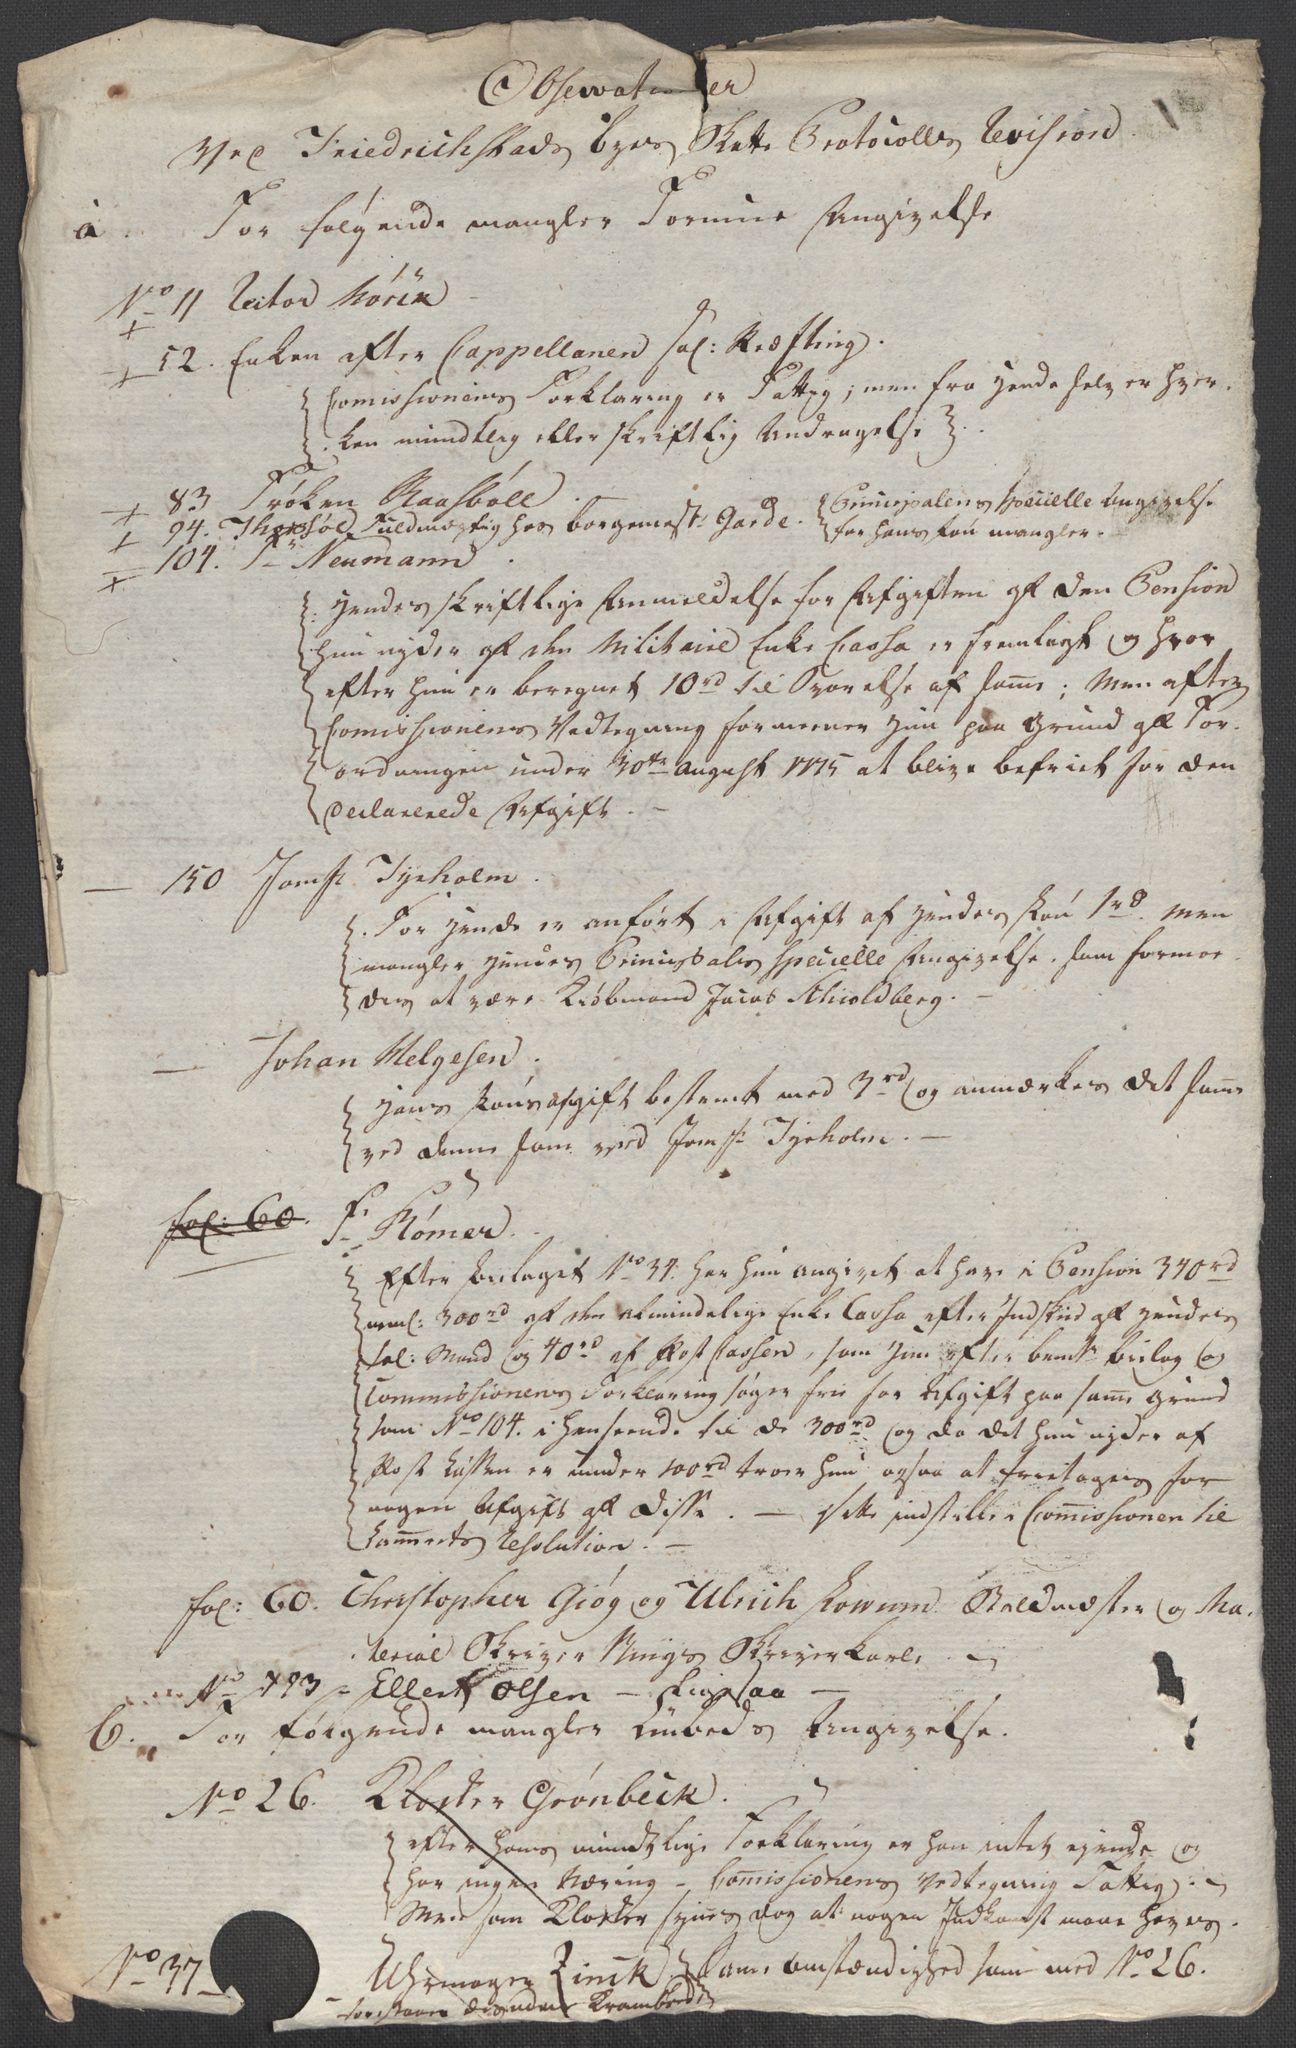 Observationer
Ved Friedrichstads byes Skatte Protocolls Revision
a. For følgende mangler Formue Angivelse
No 11 Rector Hörik
52. Enken efter Cappellanen sal: Kræfting.
Comissionens Forklaring er Fattig; men fra hende selv er hver-
ken mundtlig eller skriftlig Andragelse
83 Frøken Raasböll
94. Fuldmægtig hos borgemestr Garde. Principalens specielle Angivelse
for hans Løn mangler.
104. Fr Neumann
hendes skriftlige Anmeldelse for Afgiften af den Pension
hun nyder af den Militaire Enke Cassa er fremlagt og hvor
efter hun er beregnet 10rd til Svarelse af samme; Men efter
Comissionens Vedtegning formener hun paa Grund af For-
ordningen under 30te August 1775 at blive befriet for den
declarerede Afgift.
150 Jomfr Tyeholm.
For hende er anført i Afgift af hendes Løn 1rd. men
mangler hendes Principals specielle Angivelse. som formoe-
des at være Kiöbmand Jacob Thioldberg.
Johan Helgesen.
hans Lönsafgift bestemt med 3rd og anmærkes det samme
ved denne som ved Jomfr Tyeholm.
fol: 60. Fr Römer.
Efter Bilaget No 34. har hun angivet at have i Pension 340rd
neml: 300rd af den almindelige Enke Cassa efter Indskud af hendes
sal: Mand og 40rd af Post Cassen, som hun efter bemte bilag og
Commissionens Forklaring søger frie for Afgift paa samme Grund
som No 104. i henseende til de 300rd og da det hun nyder af
Post Cassen er under 100rd troer hun ogsaa at fritages for
nogen Afgift af disse. — dette indstiller Comissionen til
Kammerets Resolution. —
fol: 60. Christopher Giög og Ulrich Staldmester og Ma-
terial Skriver Skriverkarle
No 193 - Ellert Olsen — ligesaa —
b. For følgende mangler Angivelse.
No 26. Kloster Grönbeck.
efter hans mundtlige Forklaring er han intet eyende og
har ingen Næring - Comissionens Vedtegning Fattig.
Men som Kloster synes dog at nogen Indkomst maae haves.
No 37 Uhrmager Zinck Samme omstændighed som med No 26.